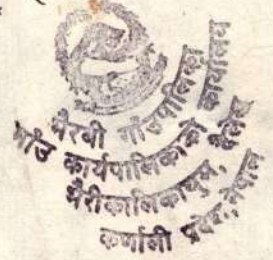 भैरवी गाउँपालिका
गाउँ कार्यपालिकाको कार्यालय
भैरीकालिकाथुम, दैलेख
कर्णाली प्रदेश, नेपाल